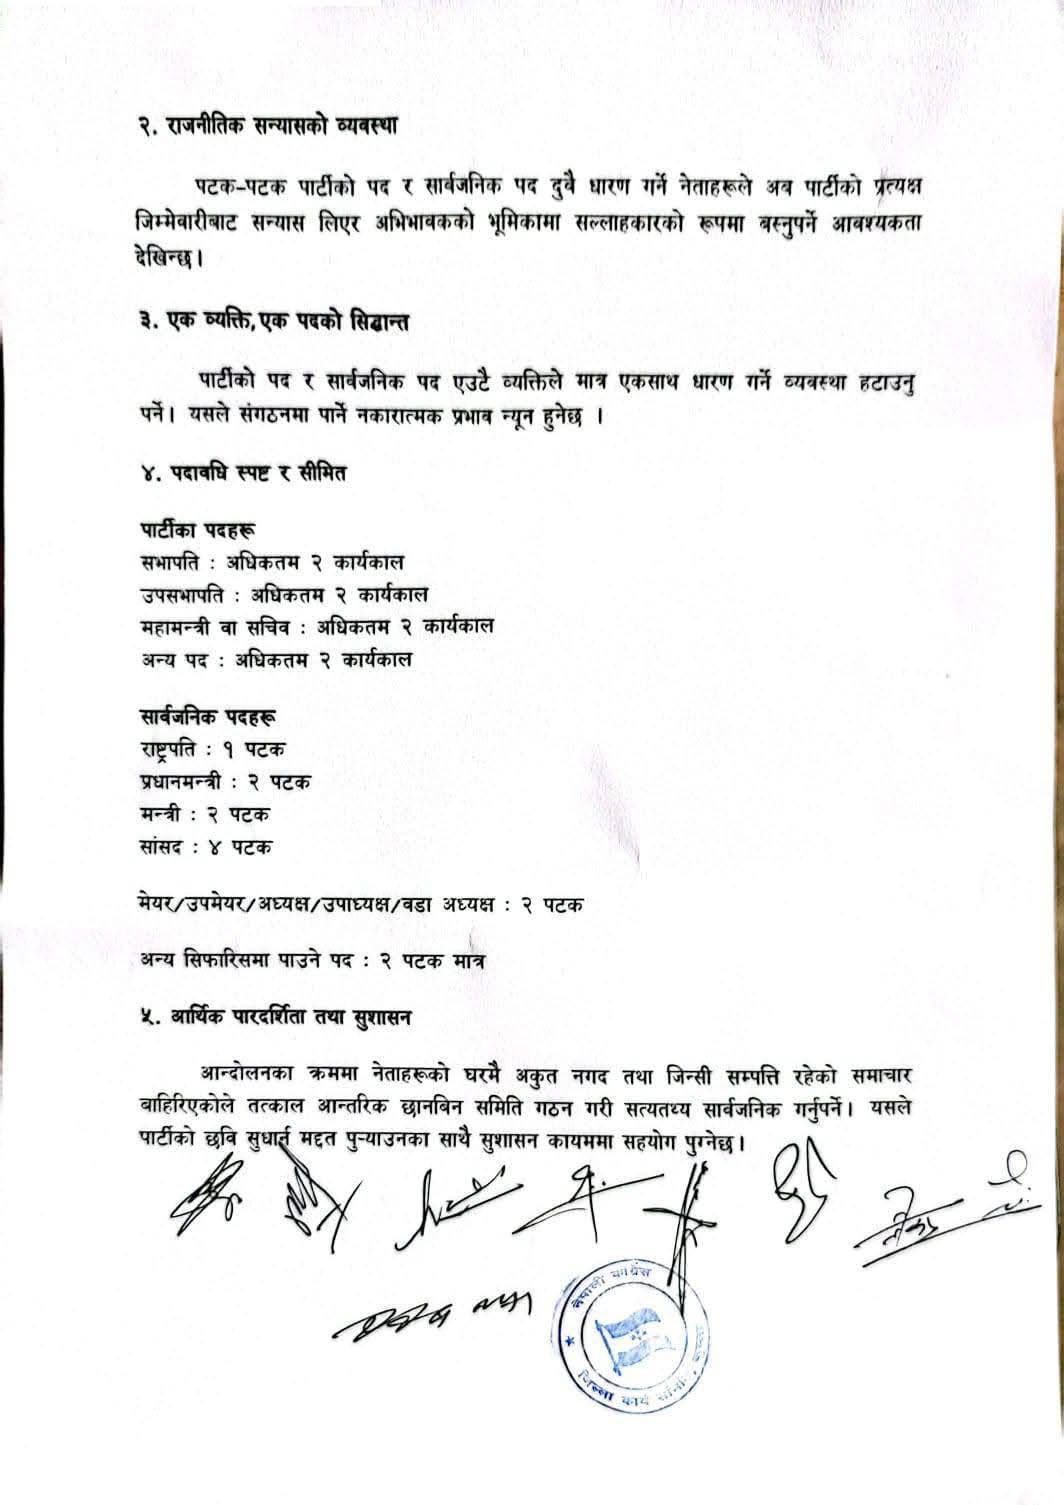 २. राजनीतिक सन्यासको व्यवस्था
पटक-पटक पार्टीको पद र सार्वजनिक पद दुवै धारण गर्ने नेताहरूले अब पार्टीको प्रत्यक्ष
जिम्मेवारीबाट सन्यास लिएर अभिभावकको भूमिकामा सल्लाहकारको रूपमा बस्नुपर्ने आवश्यकता
देखिन्छ।
३. एक व्यक्ति, एक पदको सिद्धान्त
पार्टीको पद र सार्वजनिक पद एउटै व्यक्तिले मात्र एकसाथ धारण गर्ने व्यवस्था हटाउनु
पर्ने। यसले संगठनमा पार्ने नकारात्मक प्रभाव न्यून हुनेछ ।
४. पदावधि स्पष्ट र सीमित
पार्टीका पदहरू
सभापति : अधिकतम २ कार्यकाल
उपसभापति : अधिकतम २ कार्यकाल
महामन्त्री वा सचिव : अधिकतम २ कार्यकाल
अन्य पद : अधिकतम २ कार्यकाल
सार्वजनिक पदहरू
राष्ट्रपति : १ पटक
प्रधानमन्त्री : २ पटक
मन्त्री : २ पटक
सांसद : ४ पटक
मेयर/उपमेयर/अध्यक्ष/उपाध्यक्ष/वडा अध्यक्ष : २ पटक
अन्य सिफारिसमा पाउने पद : २ पटक मात्र
५. आर्थिक पारदर्शिता तथा सुशासन
आन्दोलनका क्रममा नेताहरूको घरमै अकुत नगद तथा जिन्सी सम्पत्ति रहेको समाचार
बाहिरिएकोले तत्काल आन्तरिक छानबिन समिति गठन गरी सत्यतथ्य सार्वजनिक गर्नुपर्ने। यसले
पार्टीको छवि सुधार्न मद्दत पुऱ्याउनका साथै सुशासन कायममा सहयोग पुग्नेछ।
नेपाली कांग्रेस
जिल्ला कार्य समिति